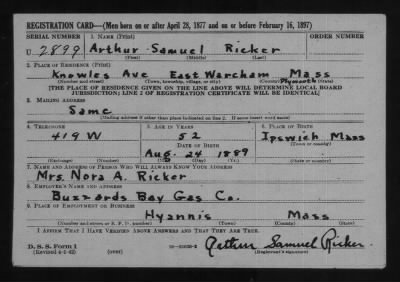 REGISTRATION CARD—(Men born on or after April 28, 1877 and on or before February 16, 1897)
SERIAL NUMBER 1. NAME (Print) ORDER NUMBER
U 2899 Arthur Samuel Ricker
(First) (Middle) (Last)
2. PLACE OF RESIDENCE (Print)
Knowles Ave East Wareham Plymouth Mass
(Number and street) (Town, township, village, or city) (County) (State)
[THE PLACE OF RESIDENCE GIVEN ON THE LINE ABOVE WILL DETERMINE LOCAL BOARD
JURISDICTION; LINE 2 OF REGISTRATION CERTIFICATE WILL BE IDENTICAL]
3. MAILING ADDRESS
Same
[Mailing address if other than place indicated on line 2. If same insert word same]
4. TELEPHONE 5. AGE IN YEARS 6. PLACE OF BIRTH
419 W 52 Ipswich Mass
DATE OF BIRTH (Town or county)
Aug. 24 1889
(Exchange) (Number) (Mo.) (Day) (Yr.) (State or country)
7. NAME AND ADDRESS OF PERSON WHO WILL ALWAYS KNOW YOUR ADDRESS
Mrs. Nora A. Ricker
8. EMPLOYER'S NAME AND ADDRESS
Buzzards Bay Gas Co.
9. PLACE OF EMPLOYMENT OR BUSINESS
Hyannis Mass
(Number and street or R. F. D. number) (Town) (County) (State)
I AFFIRM THAT I HAVE VERIFIED ABOVE ANSWERS AND THAT THEY ARE TRUE.
D. S. S. Form 1
(Revised 4-1-42) (over) Arthur Samuel Ricker.
(Registrant's signature)